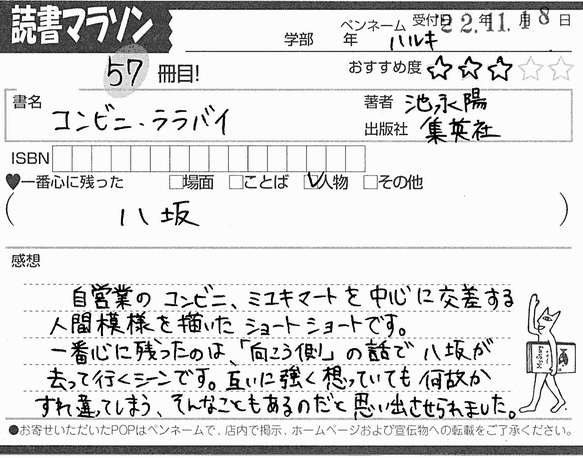 読書マラソン
学部 年 ペンネーム ハルキ 受付日 22年11月18日
57 冊目!
おすすめ度 ☆☆☆☆☆
書名 コンビニ・ララバイ
著者 池永陽
出版社 集英社
ISBN
♥一番心に残った □場面 □ことば ☑人物 □その他
(八坂)
感想
自営業のコンビニ、ミユキマートを中心に交差する
人間模様を描いたショートショートです。
一番心に残ったのは、「向こう側」の話で八坂が
去って行くシーンです。互いに強く想っていても何故か
すれ違ってしまう、そんなこともあるのだと思い出させられました。
●お寄せいただいたPOPはペンネームで、店内で掲示、ホームページおよび宣伝物への転載をご了承ください。